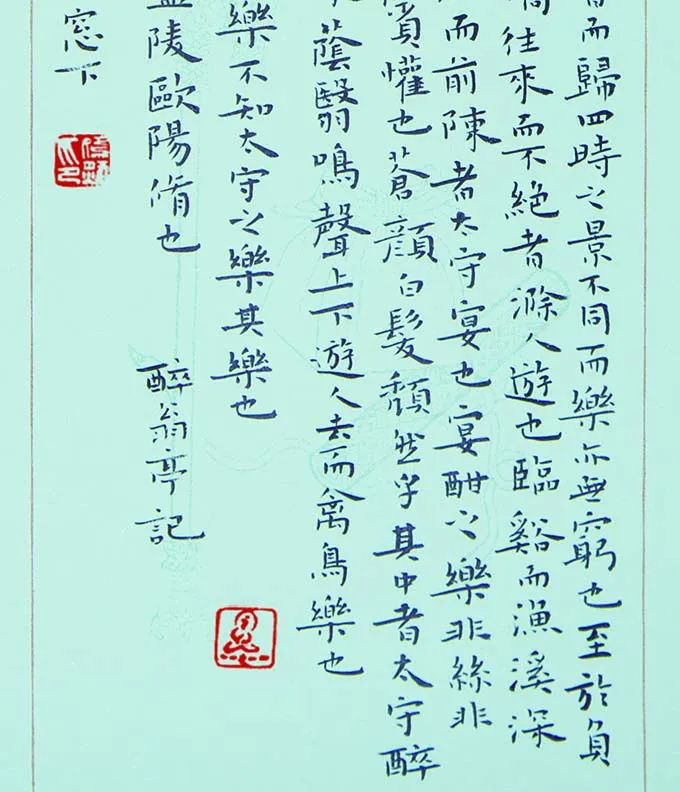 而歸四時之景不同而樂亦無窮也至於負
往來而不絕者滁人遊也臨谿而漁溪深
而前陳者太守宴也宴酣之樂非絲非
賓懽也蒼顏白髮頹然乎其中者太守醉
蔭翳鳴聲上下遊人去而禽鳥樂也
樂不知太守之樂其樂也
陵歐陽脩也 醉翁亭記
窓下